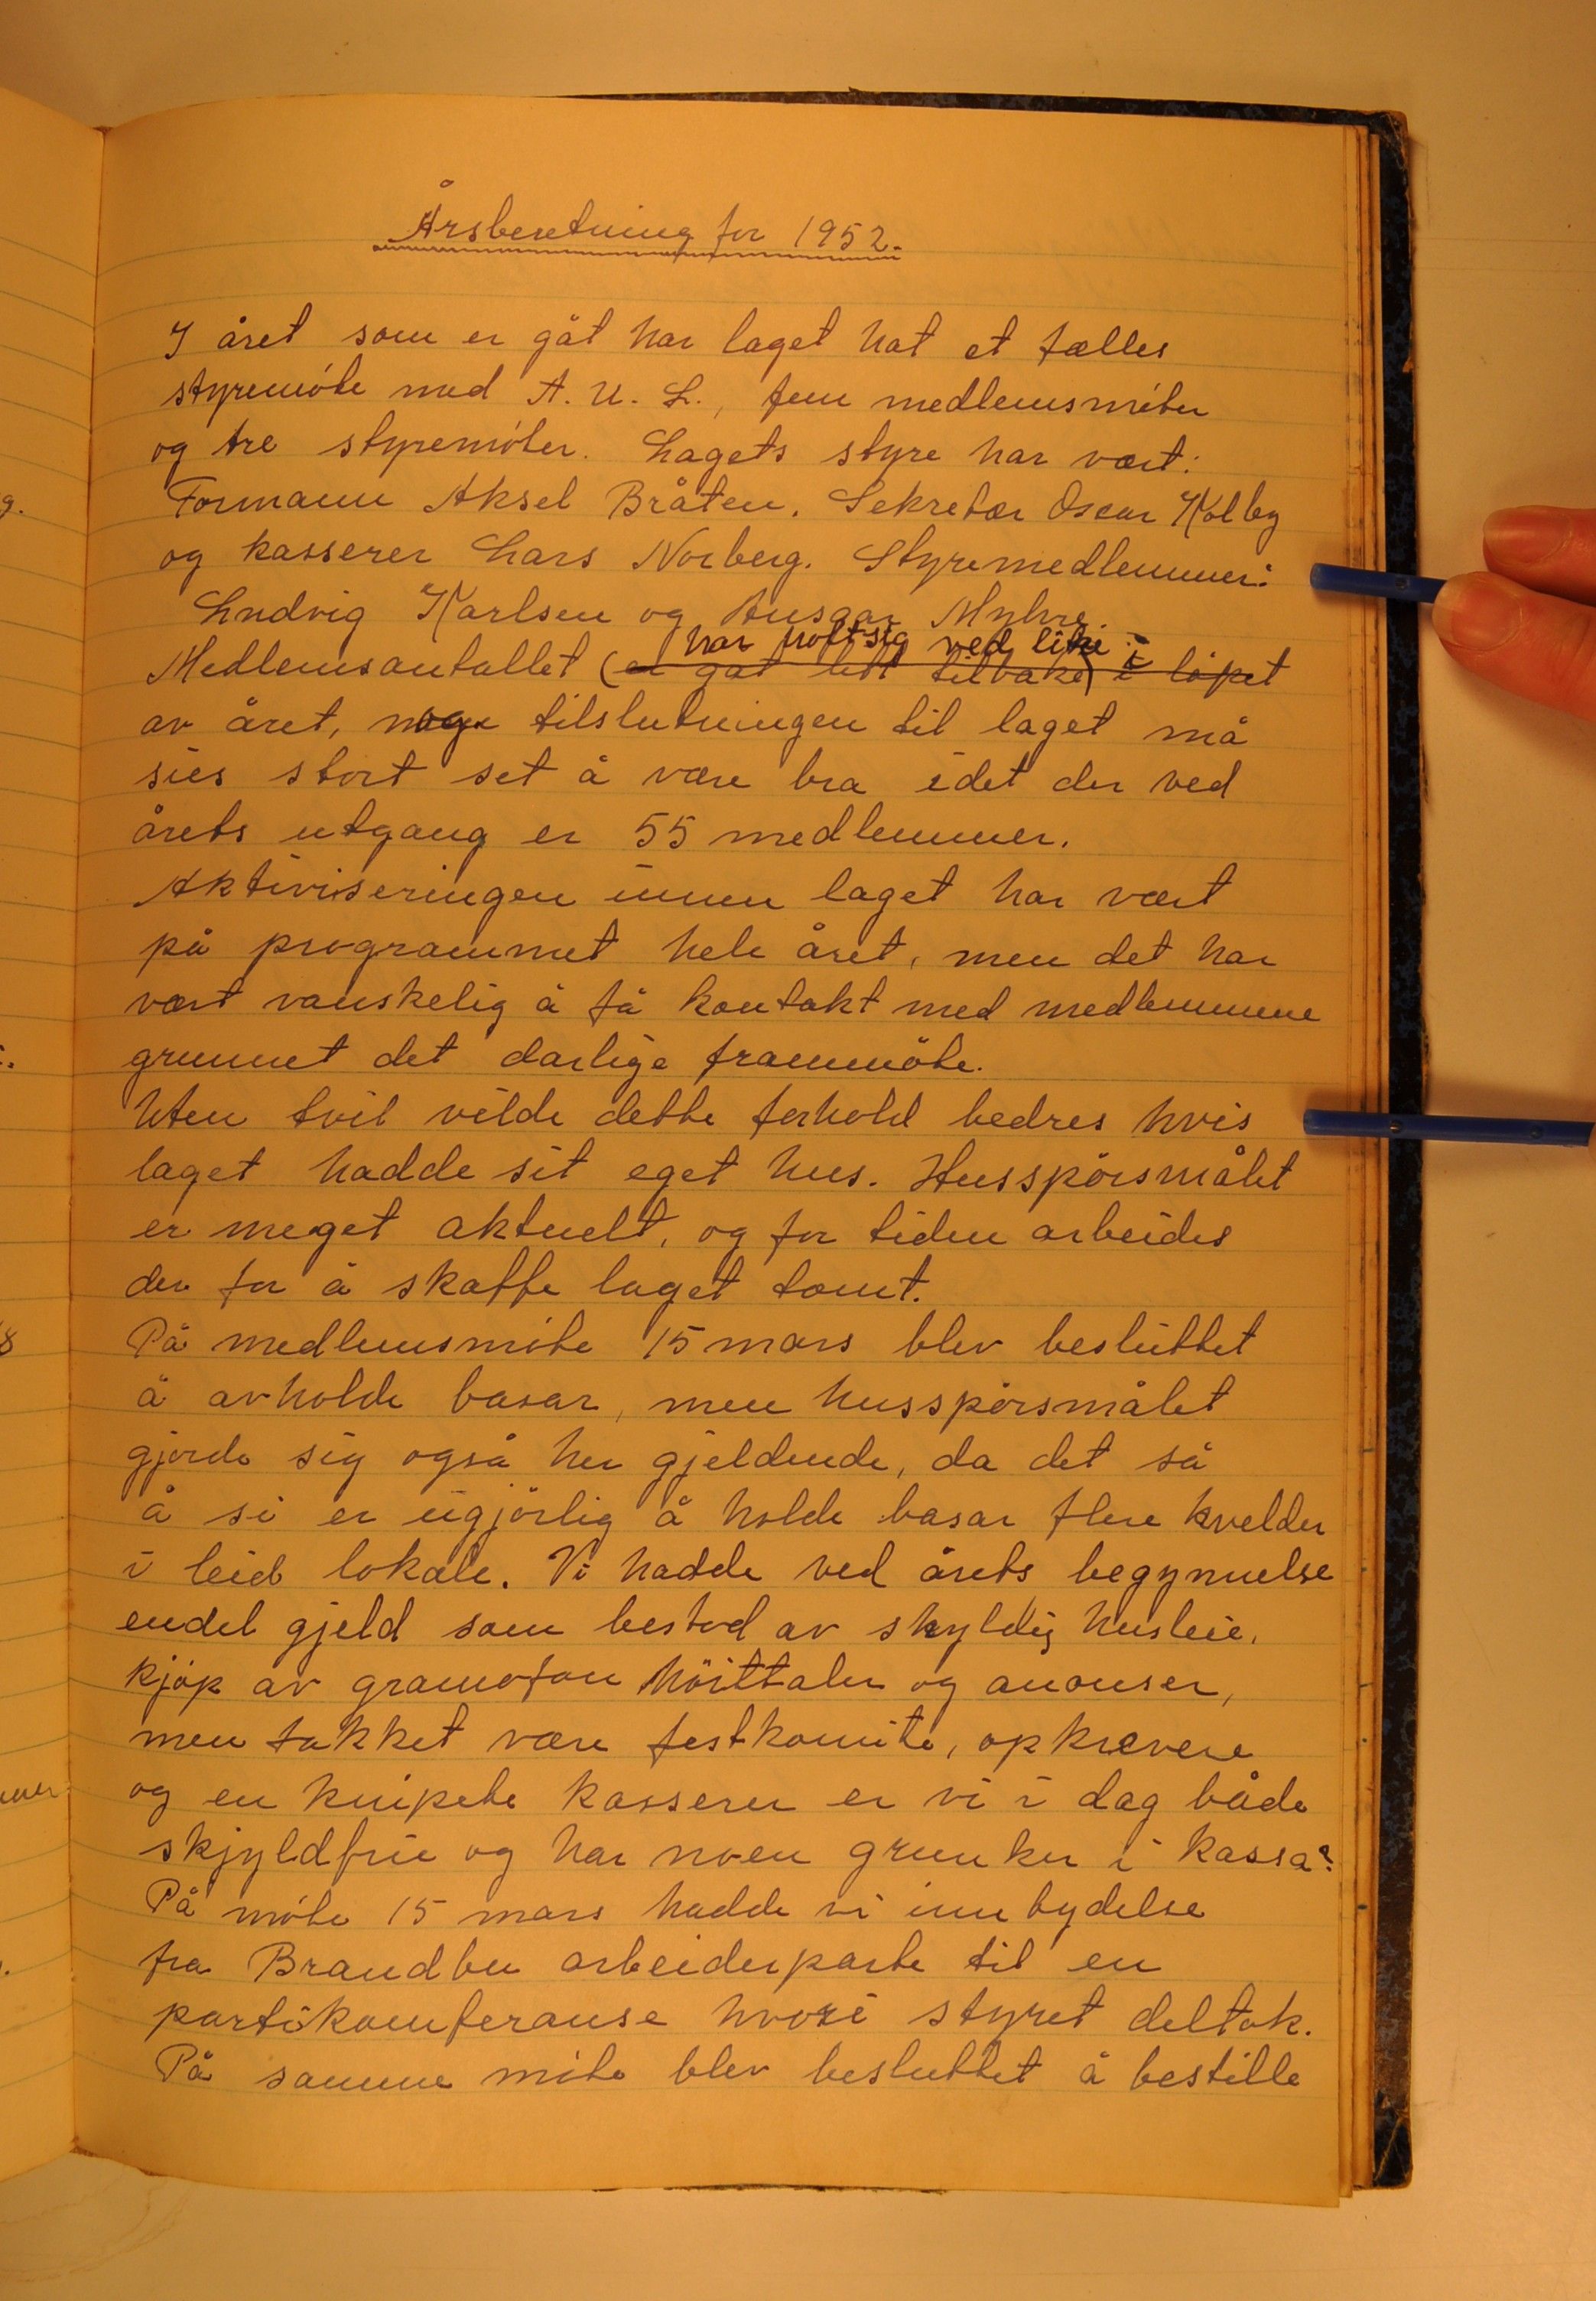 Årsberetning for 1952.
I året som er gåt har laget hat et fælles
styremöte med A. U. L., fem medlemsmöter
og tre styremöter. Lagets styre har vært:
Formann Aksel Bråten. Sekretær Oscar Kolby
og kasserer Lars Norberg. Styremedlemmer:
Ludvig Karlsen og Ansgar Myhre.
har holt sig ved like i
Medlemsantallet (er gåt litt tilbake) i löpet
av året, tilslutningen til laget må
sies stort set å være bra idet der ved
årets utgang er 55 medlemmer.
Aktiviseringen innen laget har vært
på programmet hele året, men det har
vært vanskelig å få kontakt med medlemmene
grunnet det darlige frammöte.
Uten tvil vilde dette forhold bedres hvis
laget hadde sit eget hus. Husspörsmålet
er meget aktuelt, og for tiden arbeides
der for å skaffe laget tomt.
På medlemsmöte 15 mars blev besluttet
å avholde basar, men husspörsmålet
gjorde sig også her gjeldende, da det så
å si er ugjörlig å holde basar flere kvelder
i leid lokale. Vi hadde ved årets begynnelse
endel gjeld som bestod av skyldig husleie,
kjöp av gramofon höittaler og anonser,
men takket være festkomite, opkrevere
og en knipete kasserer er vi i dag både
skjyldfrie og har noen grunker i kassa.
På möte 15 mars hadde vi innbydelse
fra Brandbu arbeiderparte til en
partikomferanse hvori styret deltok.
På samme möte blev besluttet å bestille